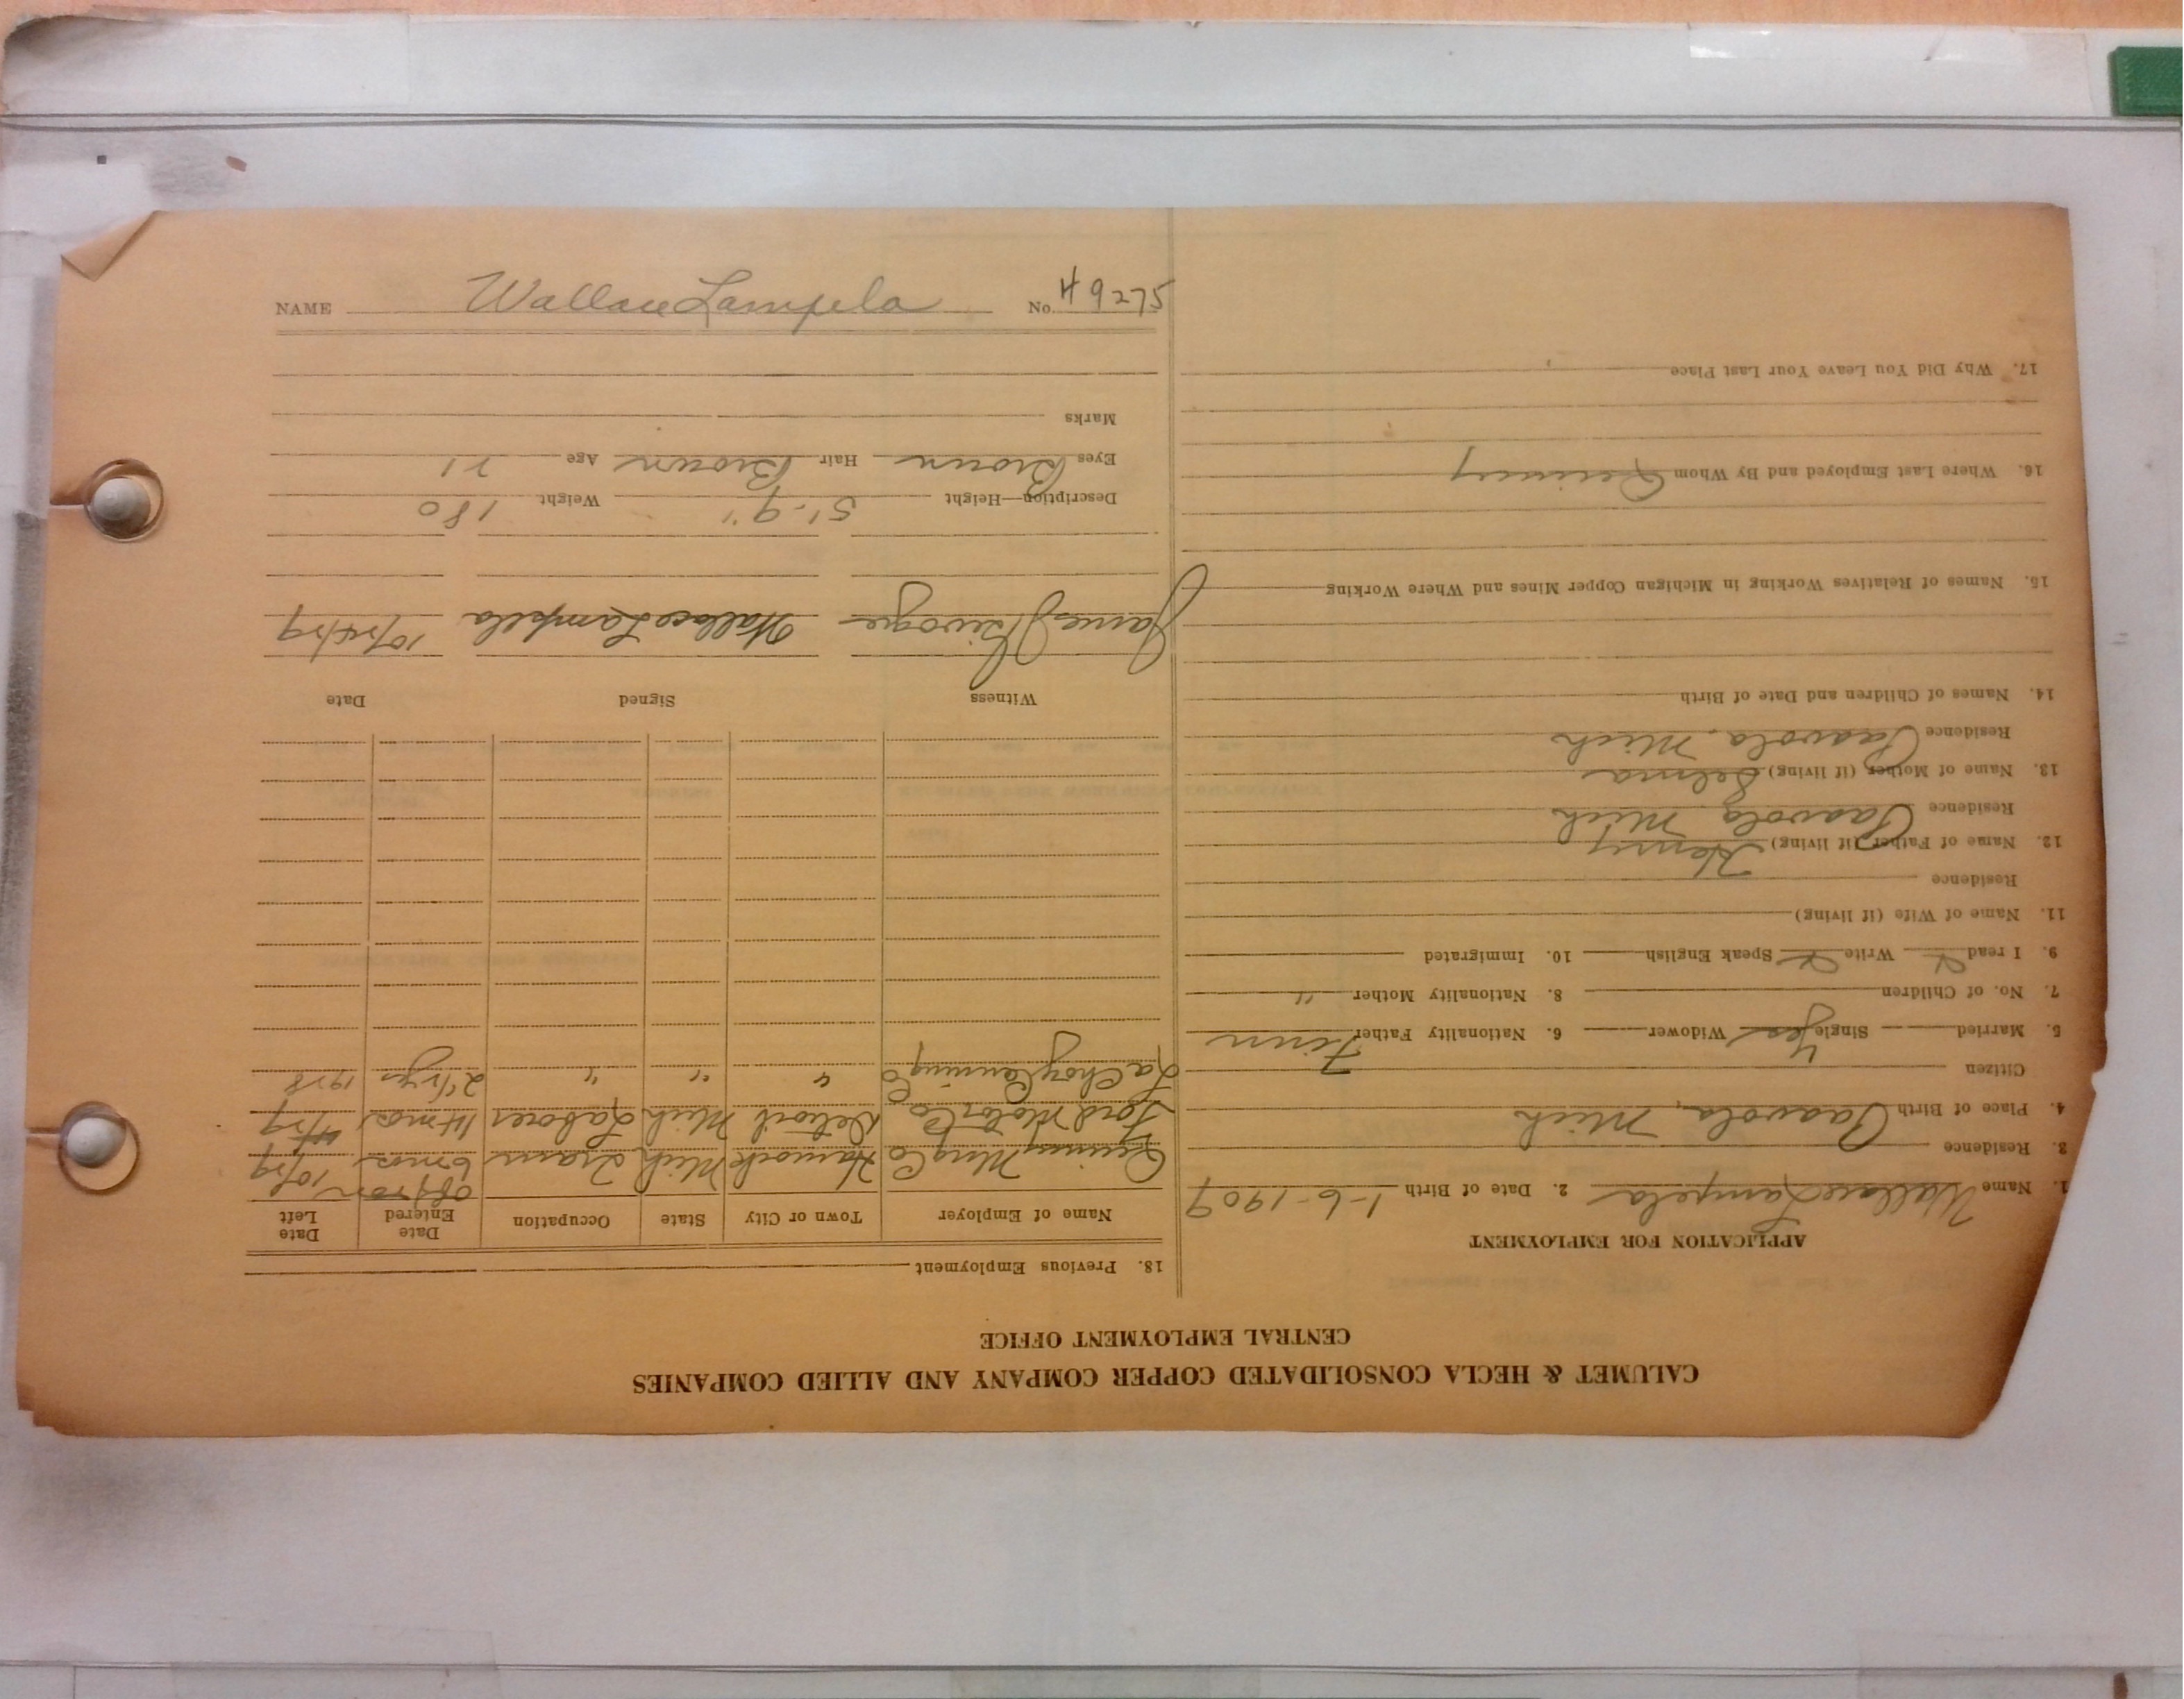 CALUMET & HECLA CONSOLIDATED COPPER COMPANY AND ALLIED COMPANIES
CENTRAL EMPLOYMENT OFFICE
APPLICATION FOR EMPLOYMENT
1. Name Wallace Lampela 2. Date of Birth 1-6-1909
3. Residence
4. Place of Birth Paavola, Mich
Citizen
5. Married Single Yes Widower 6. Nationality Father Finn
7. No. of Children 8. Nationality Mother "
9. I read Write Speak English 10. Immigrated
11. Name of Wife (if living)
Residence
12. Name of Father (if living) Henry
Residence Paavola, Mich
13. Name of Mother (if living) Selma
Residence Paavola, Mich
14. Names of Children and Date of Birth
15. Names of Relatives Working in Michigan Copper Mines and Where Working
16. Where Last Employed and By Whom Quincy
17. Why Did You Leave Your Last Place
18. Previous Employment
Name of Employer Town or City State Occupation Date Entered Date Left
Quincy Mng Co Hancock Mich Tram 6 mos 10/29
Ford Motor Co Detroit Mich Laborer 14 mos /29
La Choy Canning Co " " " 2 yrs 1928
Witness Signed Date
James Wallace Lampela 10/24/29
Description—Height 5'-9" Weight 180
Eyes Brown Hair Brown Age 21
Marks
NAME Wallace Lampela No. 49275